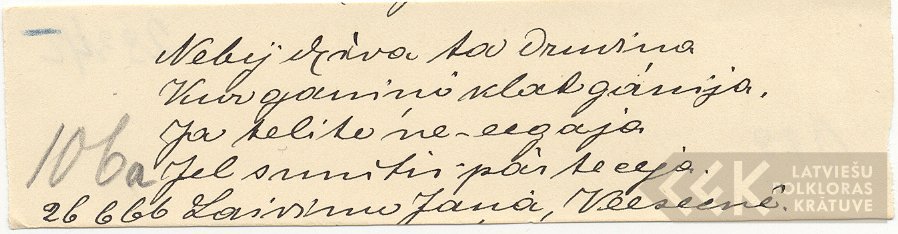 Nebij dziva ta druvina
Kur ganini klat gánija.
Ja telite ne-eegaja
Jel sunitis pārteceja.
106a
26 666 Laivinu Jana, Veeseenê.
LATVIEŠU
FOLKLORAS
KRĀTUVE